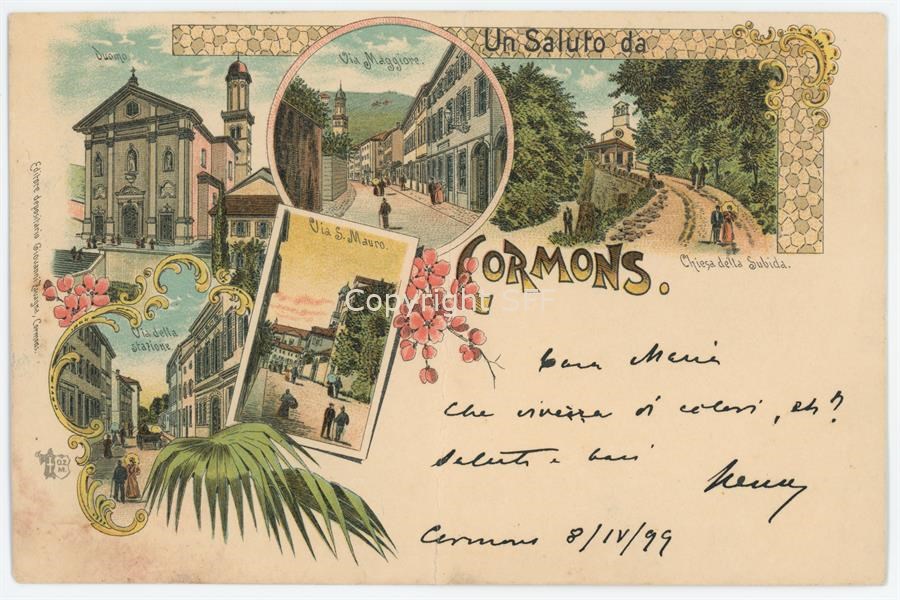 Un Saluto da
CORMONS.
Duomo.
Via Maggiore.
Chiesa della Subida.
Via S. Mauro.
Via della
stazione.
Editore depositario Giovanni
, Cormons.
D.Z.
M.
Copyright SFF
Cara Maria
Che vivezza di colori, eh?
Saluti e baci
Cormons 8/IV/99